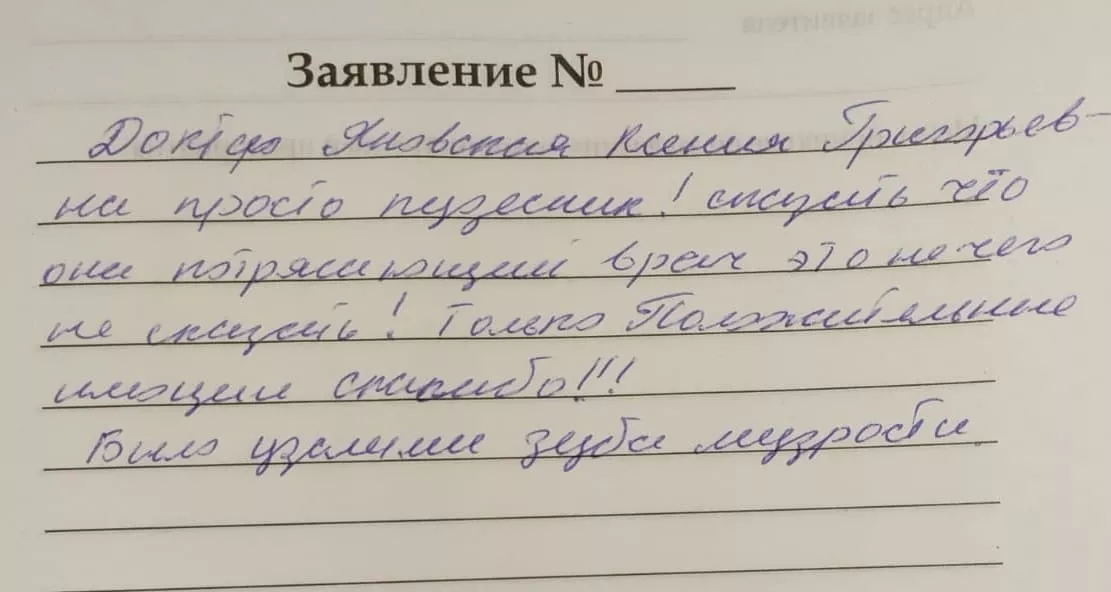 Заявление №
Доктор Яновская Ксения Григорьев-
на просто кудесник! сказать что
она потрясающий врач это не чего
не сказать! Только Положительные
эмоции спасибо!!!
Было удаление зуба мудрости.